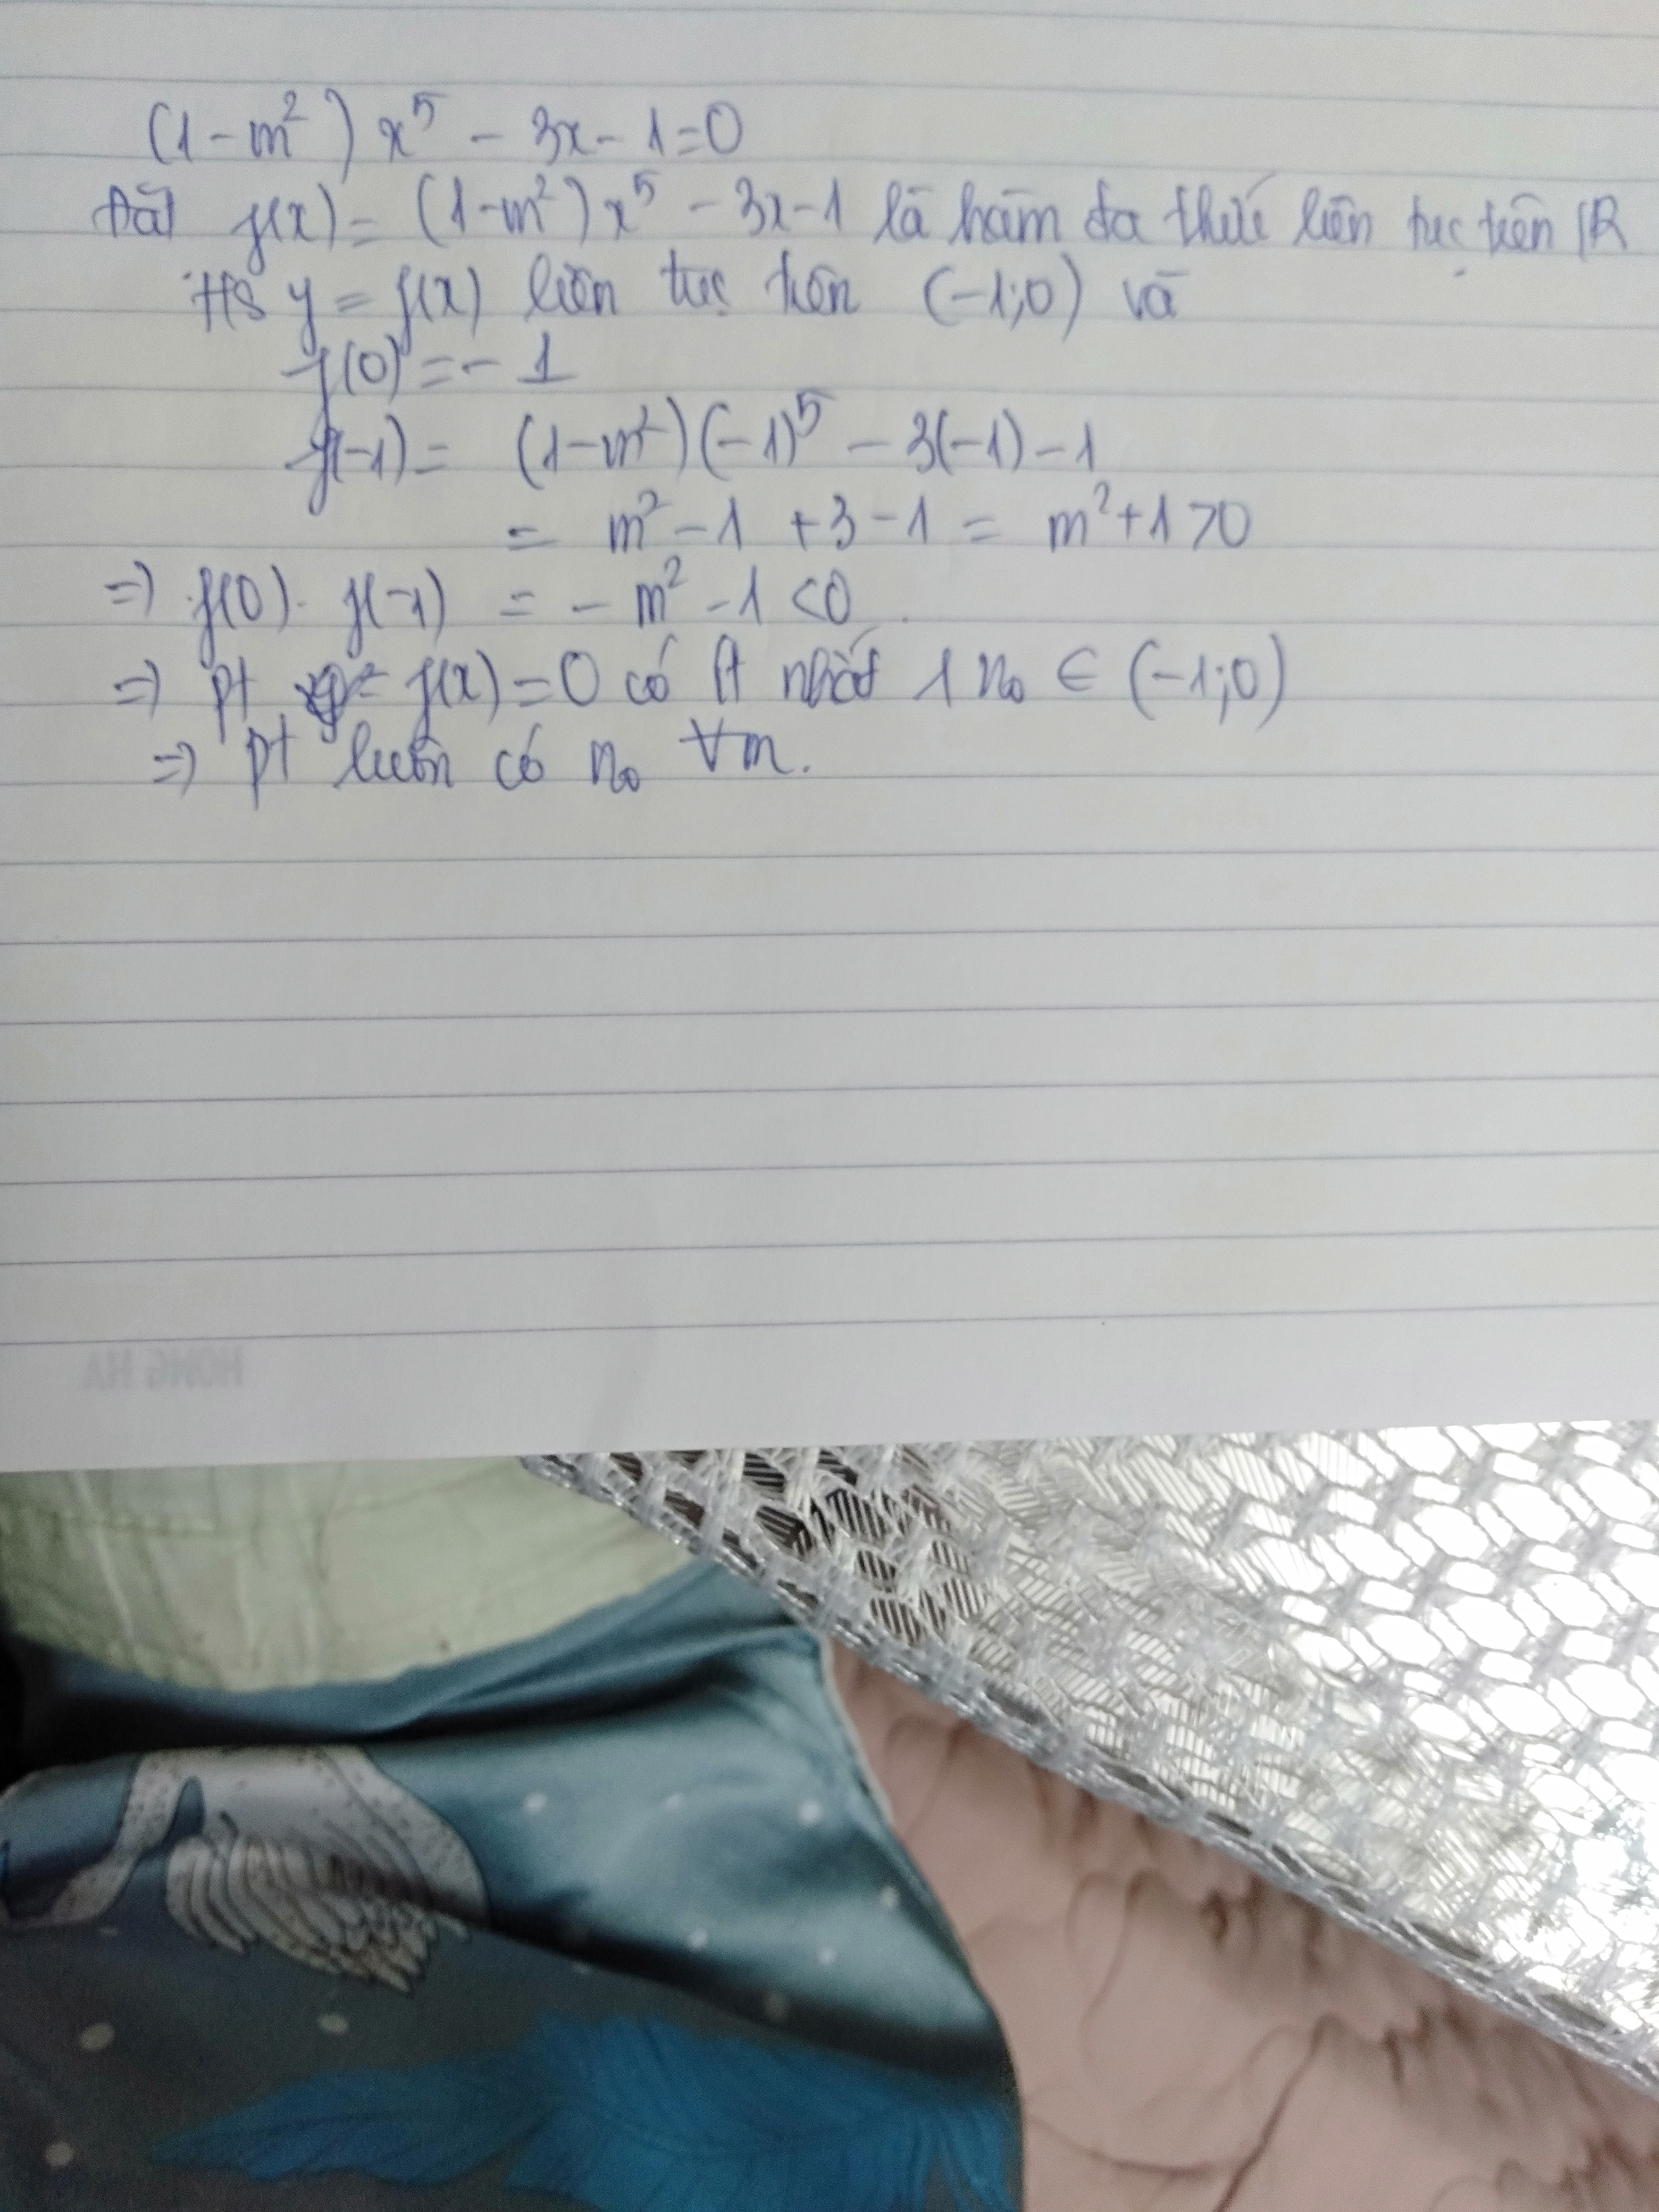 (1 - m²) x⁵ - 3x - 1 = 0
Đặt f(x) = (1 - m²) x⁵ - 3x - 1 là hàm đa thức liên tục trên ℝ
HS y = f(x) liên tục trên (-1;0) và
f(0) = - 1
f(-1) = (1 - m²)(-1)⁵ - 3(-1) - 1
= m² - 1 + 3 - 1 = m² + 1 > 0
=> f(0) . f(-1) = - m² - 1 < 0
=> pt f(x) = 0 có ít nhất 1 n₀ ∈ (-1;0)
=> pt luôn có n₀ ∀m.
HONG HA